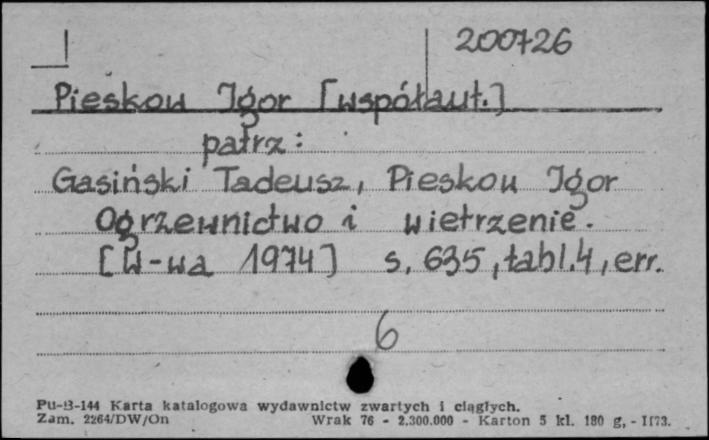 200726
Pieskow Igor [współaut.]
patrz:
Gasiński Tadeusz, Pieskow Igor
Ogrzewnictwo i wietrzenie.
[W-wa 1974] s. 635, tabl. 4, err.
6
Pu-B-144 Karta katalogowa wydawnictw zwartych i ciągłych.
Zam. 2264/DW/On Wrak 76 - 2.300.000 - Karton 5 kl. 180 g, - 1173.